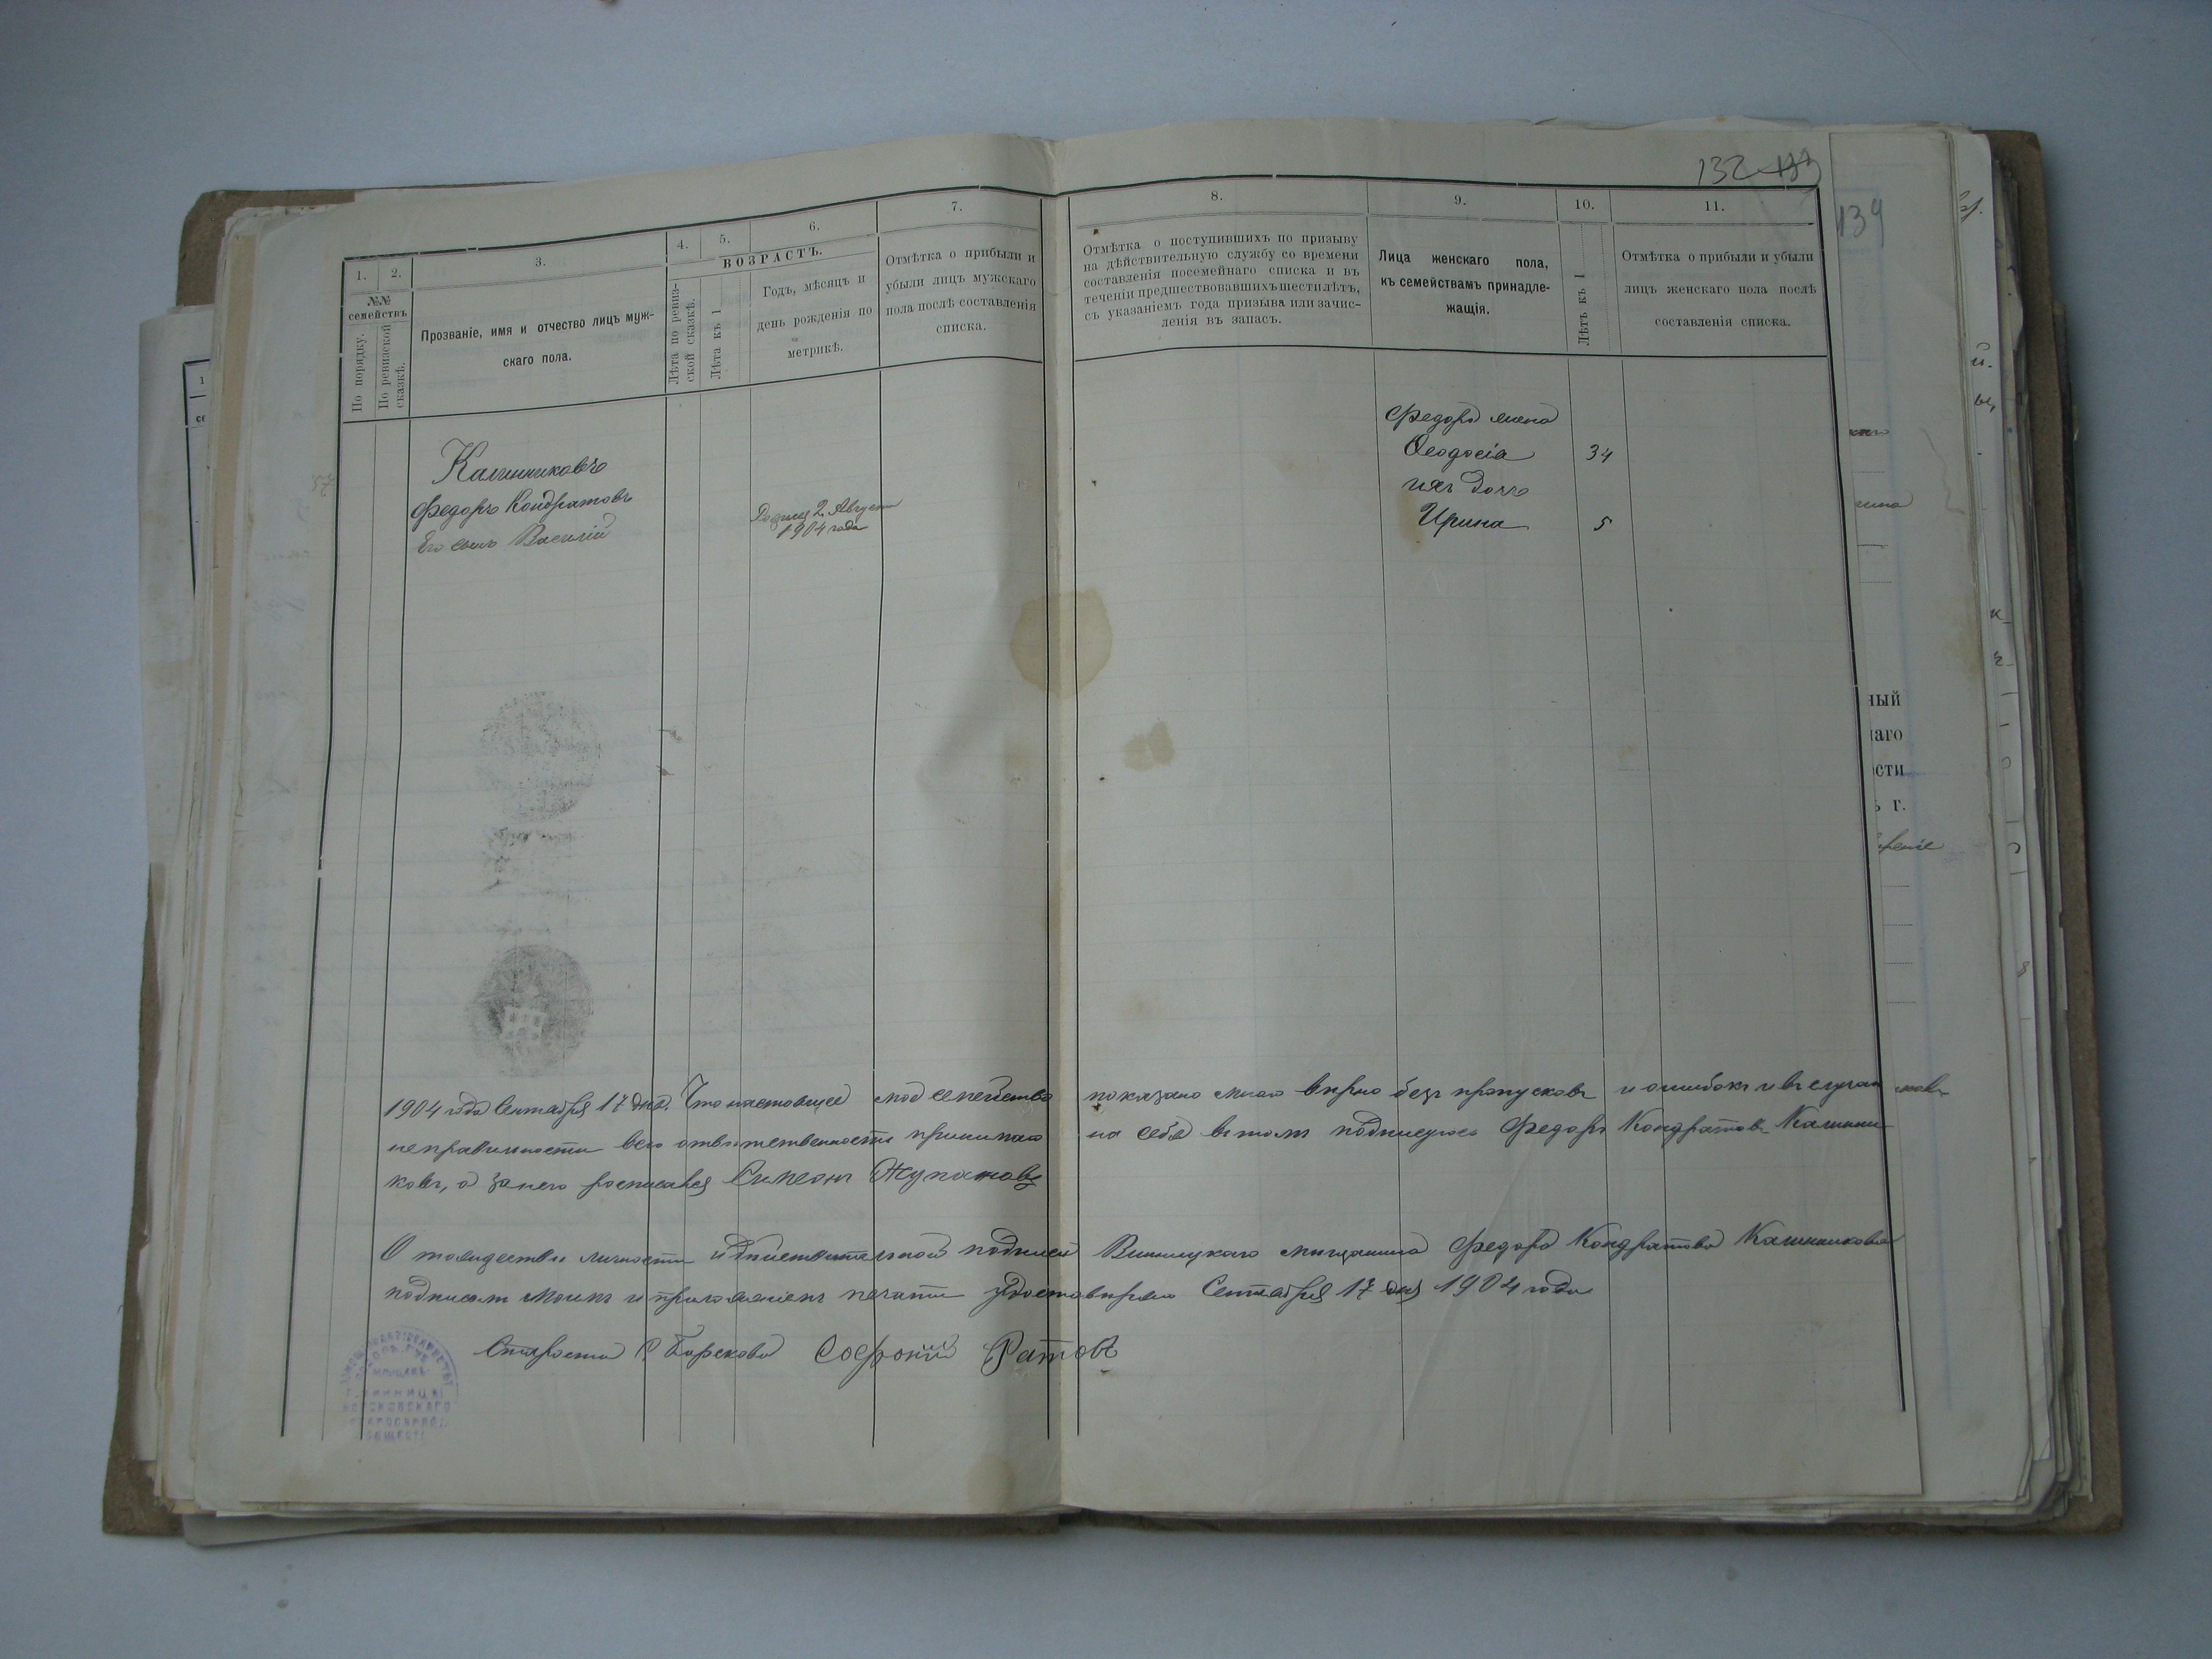 132 133
1. 2. 3. 4. 5. 6. 7.
№№
семействъ
По порядку.
По ревизской
сказкѣ.
Прозваніе, имя и отчество лицъ муж-
скаго пола.
ВОЗРАСТЪ.
Лѣта по ревиз-
ской сказкѣ.
Лѣта къ 1
Годъ, мѣсяцъ и
день рожденія по
метрикѣ.
Отмѣтка о прибыли и
убыли лицъ мужскаго
пола послѣ составленія
списка.
8. 9. 10. 11.
Отмѣтка о поступившихъ по призыву
на дѣйствительную службу со времени
составленія посемейнаго списка и въ
теченіи предшествовавшихъ шести лѣтъ,
съ указаніемъ года призыва или зачис-
ленія въ запасъ.
Лица женскаго пола,
къ семействамъ принадле-
жащія.
Лѣтъ къ 1
Отмѣтка о прибыли и убыли
лицъ женскаго пола послѣ
составленія списка.
Калинниковъ
Федоръ Кондратовъ
Его сынъ Василій
Родился 2 Августа
1904 года
Федора жена
Феодосія 34
ихъ дочь
Ирина 5
1904 года Сентября 17 дня. Что настоящее моё семейство показано мною вѣрно безъ пропусковъ и ошибокъ и въ случаи
неправильности всю отвѣтственность принимаю на себя въ томъ подписуюсь Федоръ Кондратовъ Калинни-
ковъ, а за него росписался Симеонъ
О тождестве личности и дѣйствительной подписи Винницкаго мищанина Федора Кондратова Калинникова
подписом моимъ и приложеніемъ печати удостовѣряю Сентября 17 дня 1904 года
Староста Борскова Софроній Ратовъ
ВИННИЦЫ
БОРСКОВСКАГО
СТАРООБРЯД.
ОБЩЕСТ
139
ный
наго
ости
г.